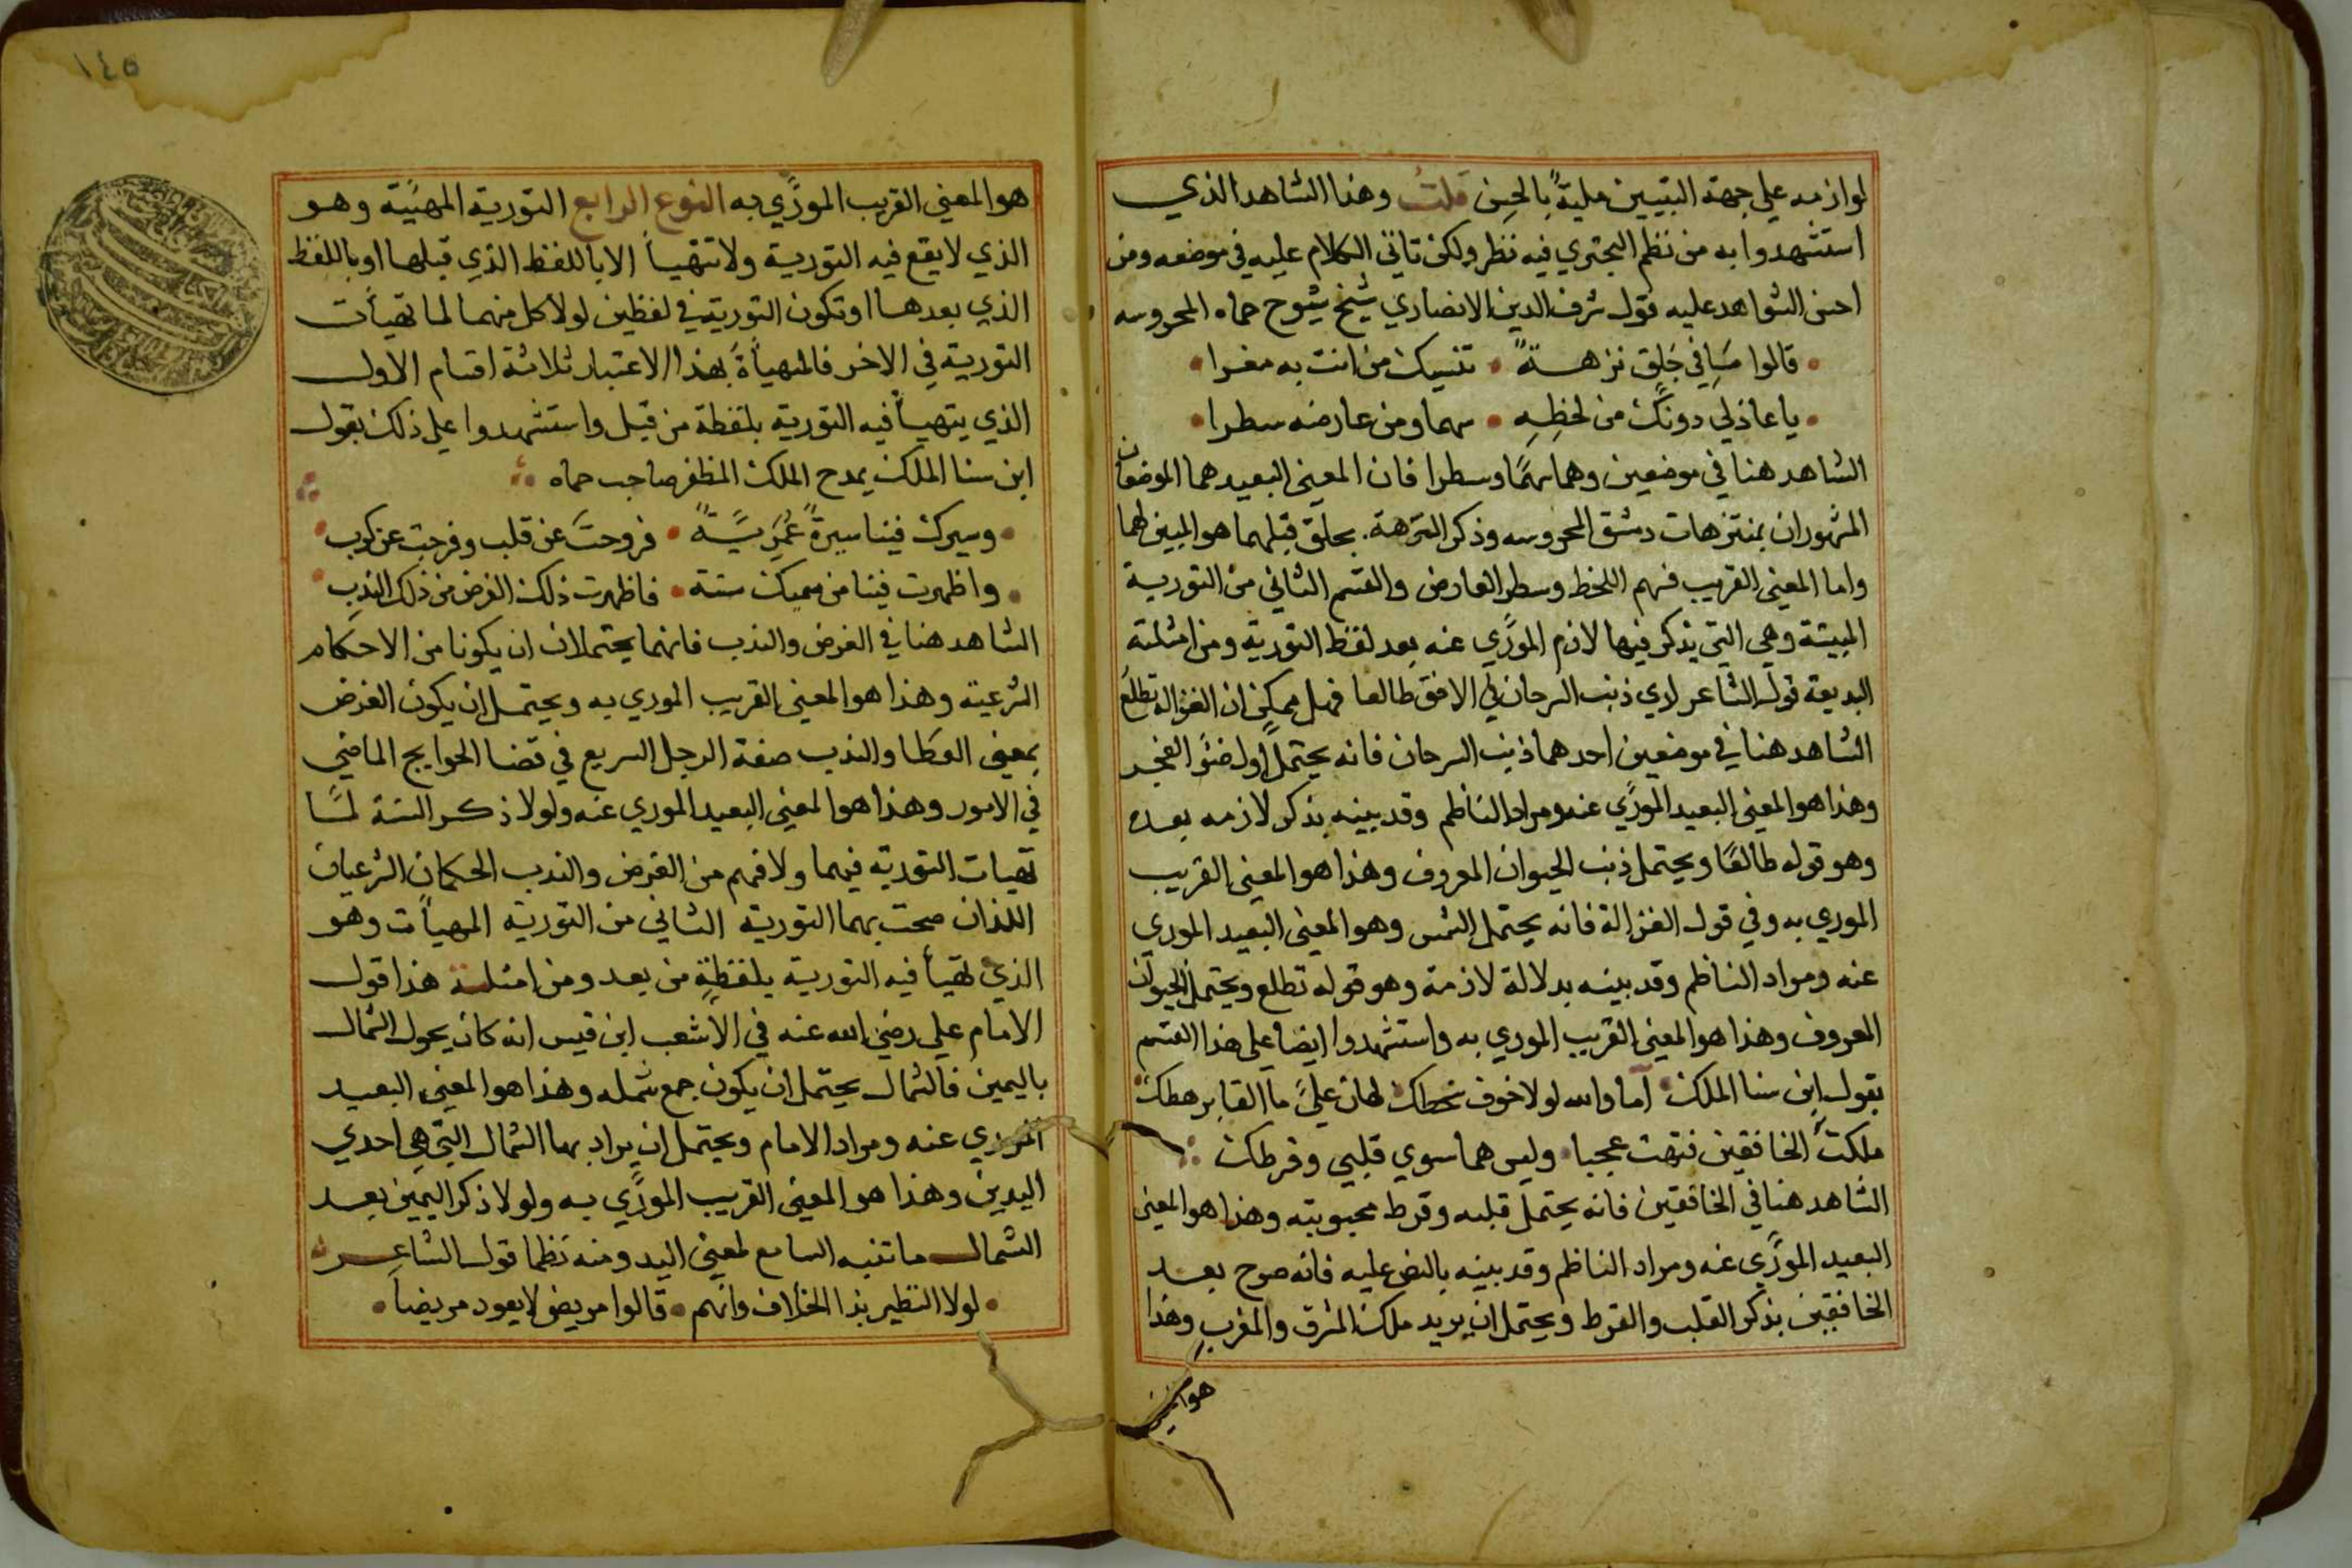 لوازمه علي جهة التبيين ملية بالحسن قلت وهذا الشاهد الذي
استشهدوا به من نظم البحتري فيه نظر ولكن تاتي الكلام عليه في موضعه ومن
احسن الشواهد عليه قول شرف الدين الانصاري شيخ شيوخ حماه المحروسه
قالوا مَا في جلق نزهة تنسيك من انت به مغرا
يا عاذلي دونك من لحظه سهما ومن عارضه سطرا
الشاهد هنا في موضعين وهما سهمًا وسطرا فان المعني البعيد هما الموضعان
المشهوران بمنتزهات دمشق المحروسه وذكر النزهة بجلق قبلهما هو المبين لهما
واما المعني القريب فسهم اللحظ وسطر العارض والقسم الثاني من التورية
المبينة وهي التي يذكر فيها لازم المورّي عنه بعد لفظ التورية ومن امثلته
البديعة قول الشاعر اري ذنب السرحان في الافق طالعا فهل ممكن ان الغزالة تطلع
الشاهد هنا في موضعين احدهما ذنب السرحان فانه يحتمل اول ضوء الفجر
وهذا هو المعني البعيد المورّي عنه ومراد الناظم وقد بينه بذكر لازمه بعده
وهو قوله طالعًا ويحتمل ذنب الحيوان المعروف وهذا هو المعني القريب
الموري به وفي قول الغزالة فانه يحتمل الشمس وهو المعني البعيد الموري
عنه ومراد الناظم وقد بينه بدلالة لازمة وهو قوله تطلع ويحتمل الحيوان
المعروف وهذا هو المعني القريب الموري به واستشهدوا ايضا علي هذا القسم
بقول ابن سنا الملك اما والله لولا خوف سخطك لهان عليَّ ما القا برهطك
ملكت الخافقين فتهت عجبا وليس هما سوي قلبي وقرطك
الشاهد هنا في الخافقين فانه يحتمل قلبه وقرط محبوبته وهذا هو المعني
البعيد المورّي عنه ومراد الناظم وقد بينه بالنص عليه فانه صرح بعد
الخافقين بذكر القلب والقرط ويحتمل ان يريد ملك المشرق والمغرب وهذا
هو المعني
١٤٥
هو المعني القريب المورّي به النوع الرابع التورية المهيئة وهو
الذي لا يقع فيه التورية ولا تتهيأ الا باللفظ الذي قبلها او باللفظ
الذي بعدها او تكون التورية في لفظين لولا كل منهما لما تهيأت
التورية في الاخر فالمهيأة بهذا الاعتبار ثلاثة اقسام الاول
الذي يتهيأ فيه التورية بلفظة من قبل واستشهدوا علي ذلك بقول
ابن سنا الملك يمدح الملك المظفر صاحب حماه
وسيرك فينا سيرة عمرية فروحت عن قلب وفرجت عن كرب
واظهرت فينا من سميك سنة فاظهرت ذلك الفرض من ذلك الندب
الشاهد هنا في الفرض والندب فانهما يحتملان ان يكونا من الاحكام
الشرعية وهذا هو المعني القريب الموري به ويحتمل ان يكون الفرض
بمعني العطا والندب صفة الرجل السريع في قضا الحوايج الماضي
في الامور وهذا هو المعني البعيد الموري عنه ولولا ذكر السنة لما
تهيات التورية فيهما ولا فهم من الفرض والندب الحكمان الشرعيان
اللذان صحت بهما التورية الثاني من التورية المهيأت وهو
الذي تهيأ فيه التورية بلفظة من بعد ومن امثلة هذا قول
الامام علي رضي الله عنه في الاشعب ابن قيس انه كان يحول الشمال
باليمين فالشمال يحتمل ان يكون جمع شمله وهذا هو المعني البعيد
الموري عنه ومراد الامام ويحتمل ان يراد بها الشمال التي هي احدي
اليدين وهذا هو المعني القريب المورّي به ولولا ذكر اليمين بعد
الشمال ما تنبه السامع لمعني اليد ومنه نظما قول الشاعر
لولا التطير بذا الخلاف وانهم قالوا مريض لا يعود مريضاً